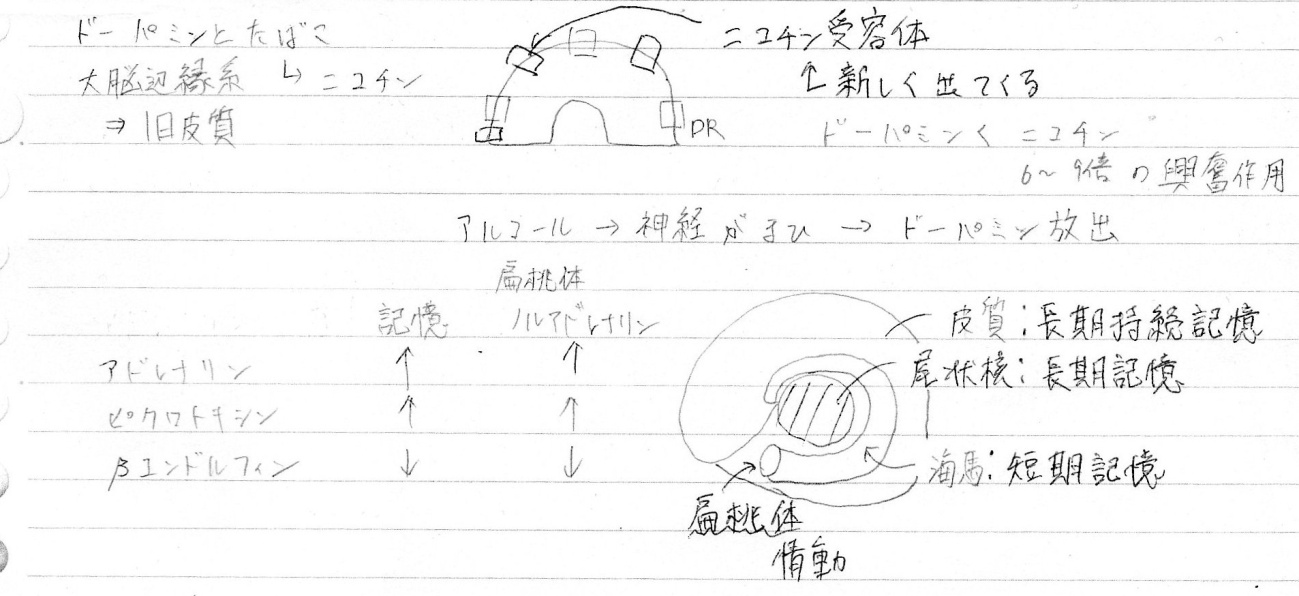 ドーパミンとたばこ
大脳辺縁系 ↳ ニコチン
⇒ 旧皮質
ニコチン受容体
↑新しく出てくる
DR
ドーパミン < ニコチン
6~9倍の興奮作用
アルコール → 神経がまひ → ドーパミン放出
扁桃体
記憶 ノルアドレナリン
アドレナリン ↑ ↑
ピクロトキシン ↑ ↑
βエンドルフィン ↓ ↓
皮質:長期持続記憶
尾状核:長期記憶
海馬:短期記憶
扁桃体
情動